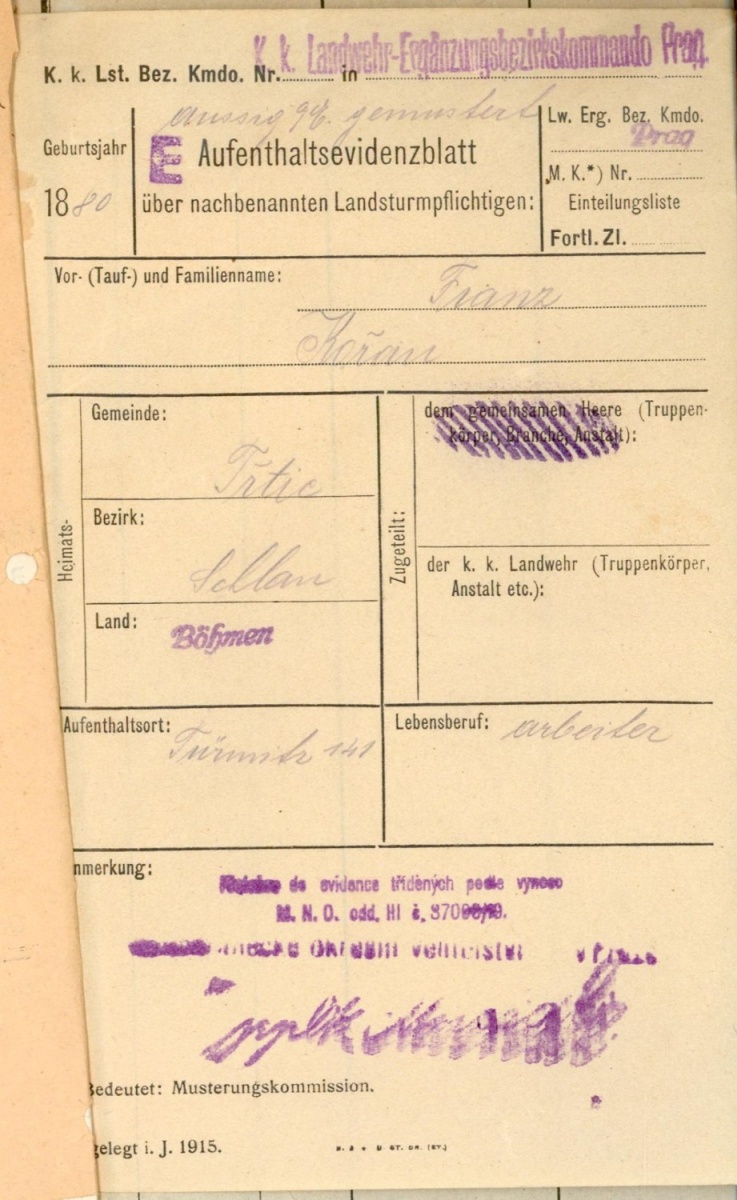 K. k. Landwehr-Ergänzungsbezirkskommando Prag
K. k. Lst. Bez. Kmdo. Nr. in
Aussig gemustert
Geburtsjahr
1880
E Aufenthaltsevidenzblatt
über nachbenannten Landsturmpflichtigen:
Lw. Erg. Bez. Kmdo.
Prag
M. K.*) Nr.
Einteilungsliste
Fortl. Zl.
Vor- (Tauf-) und Familienname:
Franz
Kořan
Heimats-
Gemeinde:
Trtic
Bezirk:
Schlan
Land:
Böhmen
Zugeteilt:
dem gemeinsamen Heere (Truppen-
körper, Branche, Anstalt):
der k. k. Landwehr (Truppenkörper,
Anstalt etc.):
Aufenthaltsort:
Türmitz 141
Lebensberuf:
arbeiter
nmerkung:
do evidence tříděných podle vynosu
M. N. O. odd. HI č. 37000/19.
Bedeutet: Musterungskommission.
gelegt i. J. 1915.